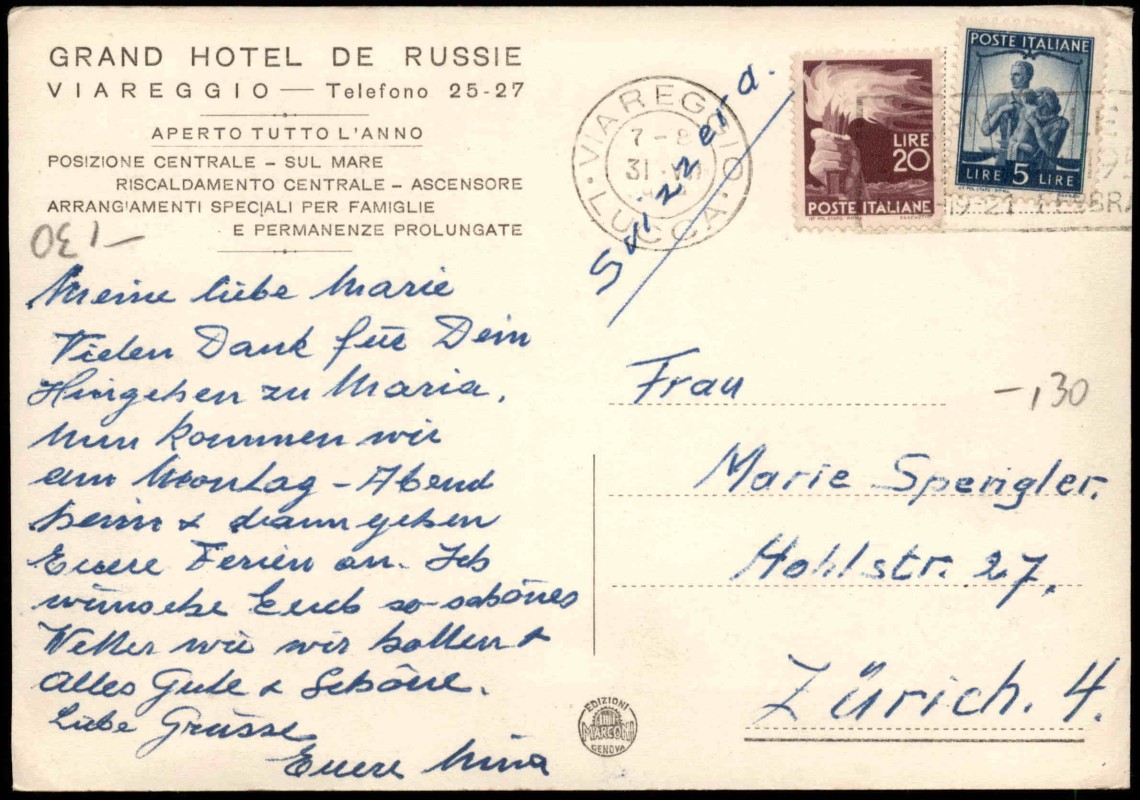 GRAND HOTEL DE RUSSIE
VIAREGGIO — Telefono 25-27
APERTO TUTTO L'ANNO
POSIZIONE CENTRALE - SUL MARE
RISCALDAMENTO CENTRALE - ASCENSORE
ARRANGIAMENTI SPECIALI PER FAMIGLIE
E PERMANENZE PROLUNGATE
-,30
Meine liebe Marie
Vielen Dank für Dein
Hingehen zu Maria.
Nun kommen wir
am Montag-Abend
heim & dann gehen
Euere Ferien an. Ich
wünsche Euch so schönes
Wetter wie wir hatten &
alles Gute & Schöne.
Liebe Grüsse
Euere Nina
VIAREGGIO
7-8
31
LUCCA
Svizzera.
LIRE
20
POSTE ITALIANE
POSTE ITALIANE
LIRE 5 LIRE
19-21 FEBBRA
Frau
-,30
Marie Spengler.
Hohlstr. 27.
Zürich. 4.
EDIZIONI
MARCONI
GENOVA